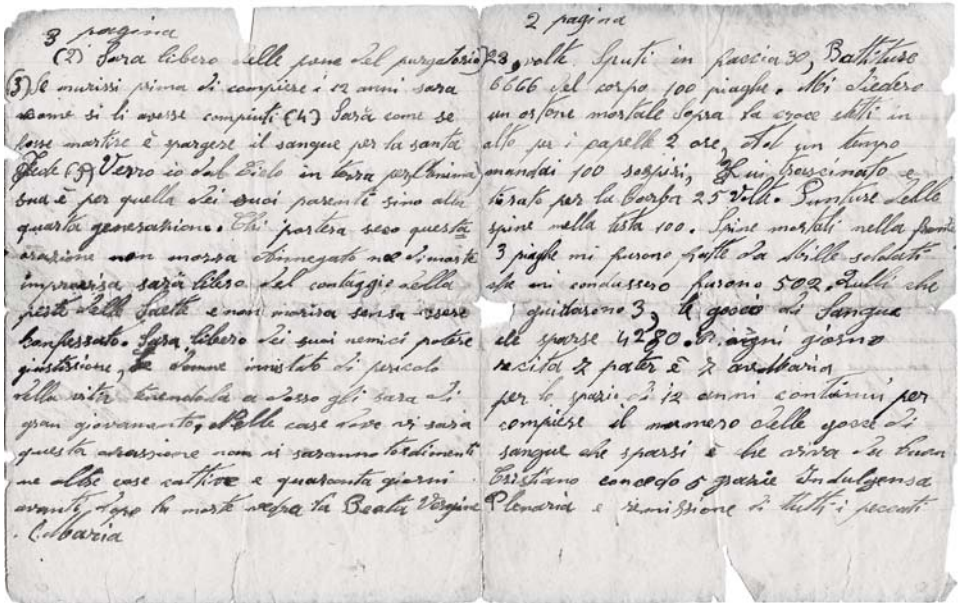 3 pagina
(2) Sara libero delle pene del purgatorio
(3) Se murissi prima di compiere i 12 anni sara
come si li avesse compiuti (4) Sarà come se
fosse martire è spargere il sangue per la santa
fede (5) Verro io dal Cielo in terra per l'anima
sua è per quella dei suoi parenti sino alla
quarta generazione. Chi portera seco questa
orazione non morra Annegato ne di morte
improvisa sarà libero del contaggio della
peste delle Saette e non morira senza essere
Confessato. Sara libero dei suoi nemici potere
giustissione, le donne in stato di pericolo
della vita tenendola a dosso gli sara di
gran giovamento, Nelle case dove vi sara
questa orassione non vi saranno tradimenti
ne altre cose cattive e quaranta giorni
avanti dopo la morte vedra la Beata Vergine
Maria
2 pagina
23, volte Sputi in faccia 30, Battiture
6666 del corpo 100 piaghe. Mi diedero
un ortone mortale Sopra la croce stetti in
alto per i capelle 2 ore, Ad un tempo
mandai 100 sospiri, Fui trascinato e
tirato per la barba 25 Volte. Punture delle
spine nella testa 100. Spine mortali nella fronte
3 piaghe mi furono fatte da Mille soldati
che mi condussero furono 502. Quelli che
guidarono 3, le gocci di Sangue
che sparse 4280. ogni giorno
recita 7 pater è 7 avemaria
per lo spazio di 12 anni continui per
compiere il numero delle gocce di
sangue che sparsi è che viva da buon
Cristiano concedo 5 grazie Indulgensa
Plenaria e remissione di tutti i peccati